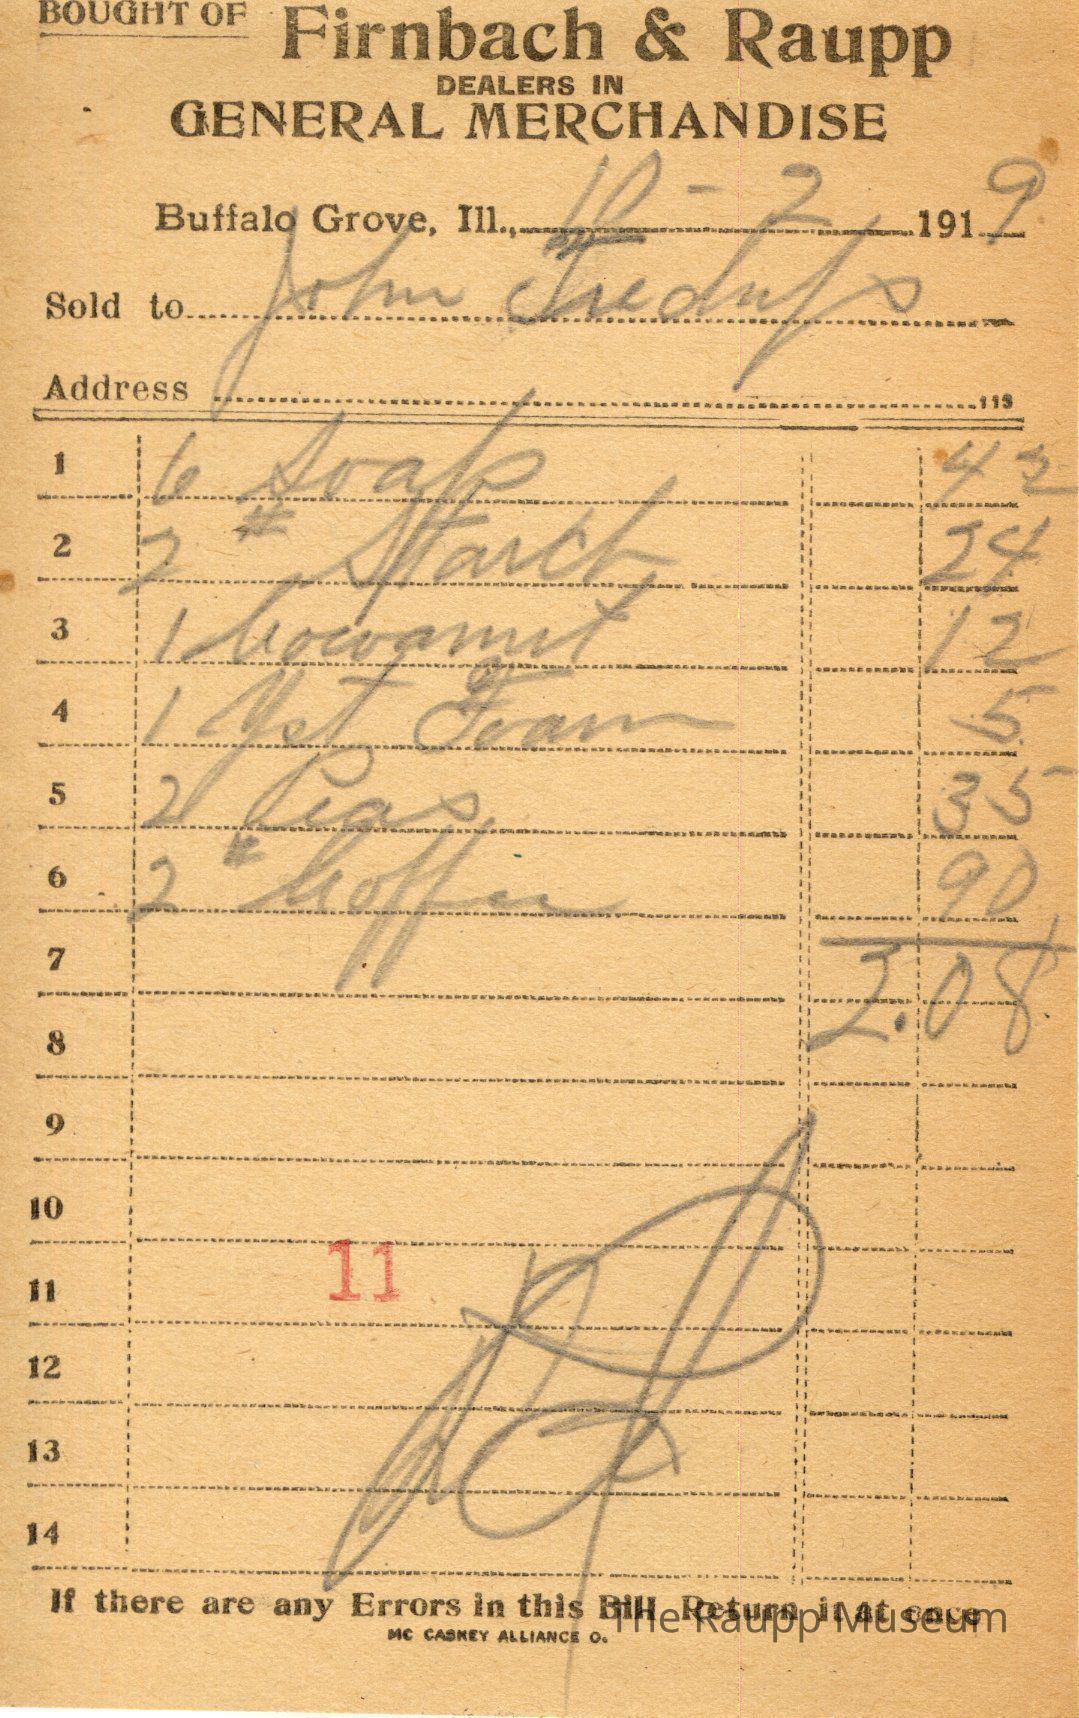 BOUGHT OF Firnbach & Raupp
DEALERS IN
GENERAL MERCHANDISE
Buffalo Grove, Ill., 10 - 2 1919
Sold to John
Address 113
1 6 Soap 42
2 2 # Starch 24
3 1 Cocoanut 12
4 1 Yst Foam 5
5 2 Peas 35
6 2 # Coffee 90
7 2.08
8
9
10
11 11
12
13
14
If there are any Errors in this Bill Return it at once
MC CASKEY ALLIANCE O.
The Raupp Museum